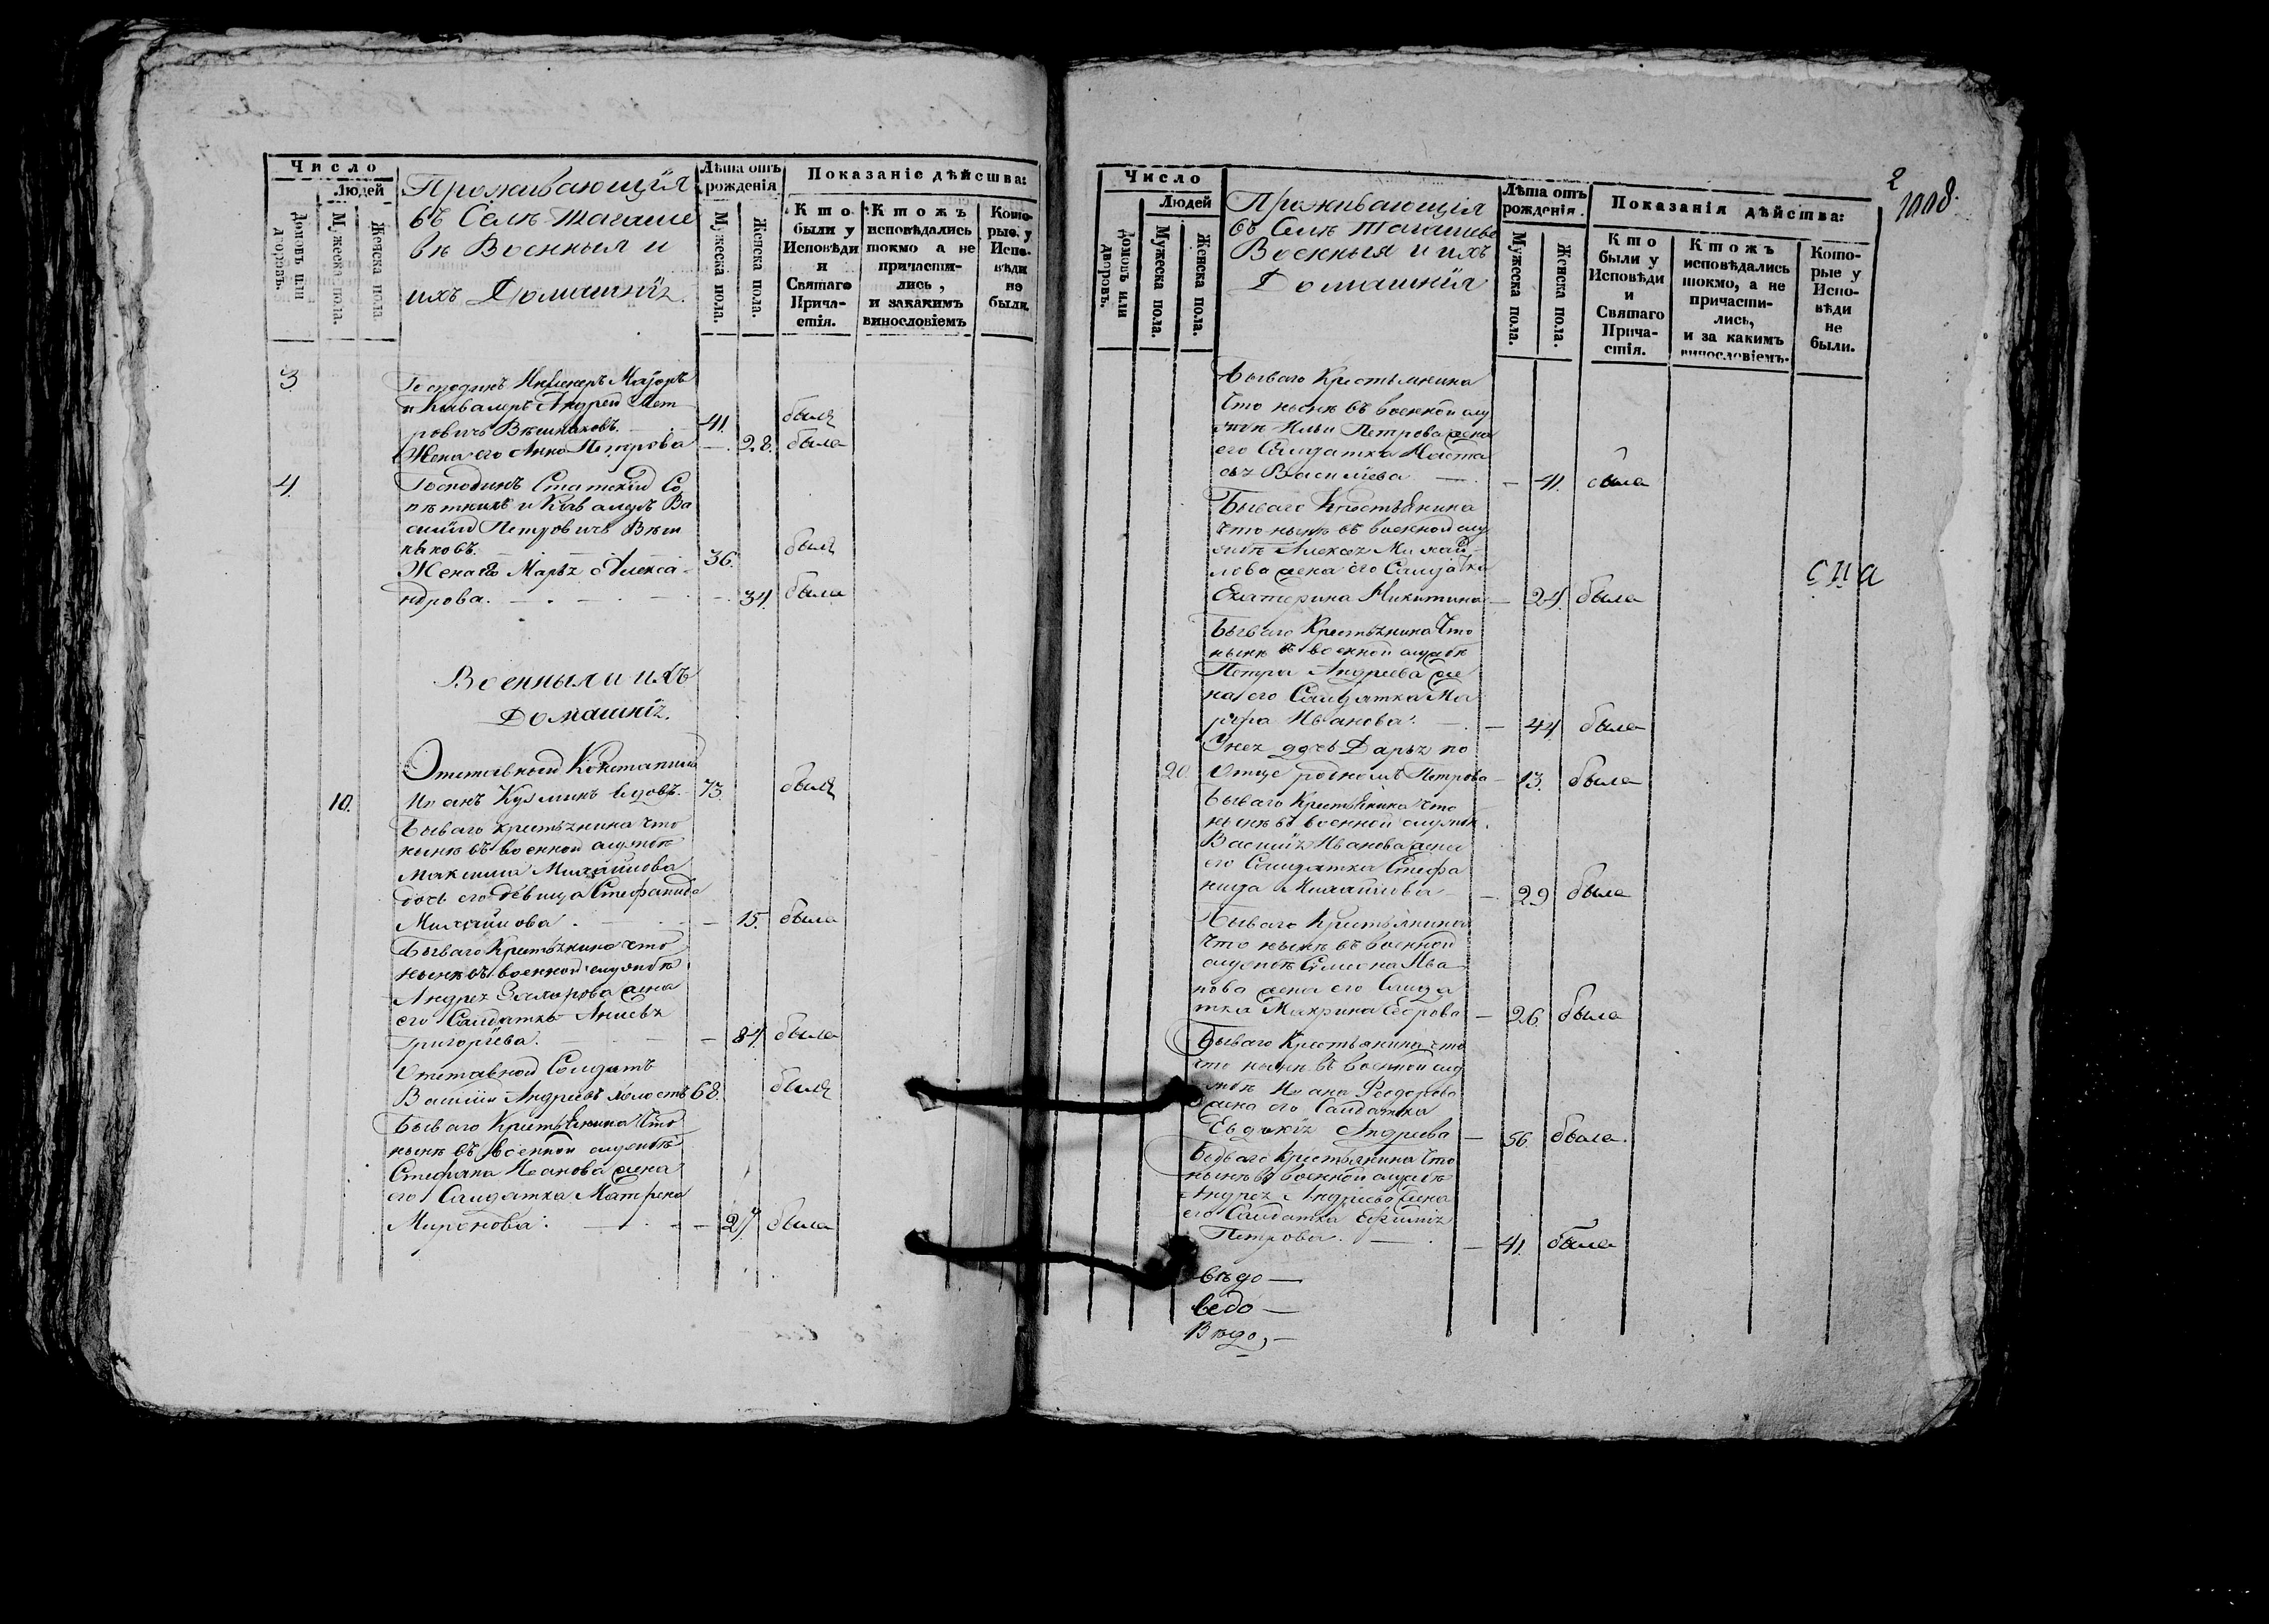 Число
Людей
Домовъ или дворовъ.
Мужеска пола.
Женска пола.
Проживающія
въ Селѣ Тагаше
вѣ Военныя и
ихъ Домашнія.
Лѣта отъ рожденія
Мужеска пола.
Женска пола.
Показаніе дѣйства:
Кто были у Исповѣди и Святаго Прича-стія.
Ктожъ исповѣдались токмо а не причасти-лись, и закакимъ винословіемъ
Кото-рые у Испо-вѣди не были.
3 Господинъ Инженеръ Маіоръ
и Кавалеръ Андрей Пет
ровичъ Вѣшняковъ. 41. былъ
Жена его Анна Петрова — 28. была
4. Господинъ Статскій Со
вѣтникъ и Кавалеръ Ва
силій Петровичъ Вѣш
няковъ. 36. былъ
Жена его Марья Алекса
ндрова. — 34. была
Военныя и ихъ
Домашнія.
Отставной
10. Иванъ Кузминъ вдовъ. 73. былъ
Бываго крестьянина что
нынѣ въ военной службѣ
Максима Михайлова
дочь его девица Стефанида
Михайлова. — 15. была
Бываго Крестьянина что
нынѣ въ военной службѣ
Андрея жена
его Салдатка
Григоріева. — 84. была
Отставной Солдатъ
Василій Андреевъ холостъ 68. былъ
Бываго Крестьянина что
нынѣ въ военной службѣ
Стефана Иванова жена
его Салдатка Матрена
Миронова. — 27. была
2
1008.
Число
Людей
Домовъ или дворовъ.
Мужеска пола.
Женска пола.
Проживающія
въ Селѣ Тагашеве
Военныя и ихъ
Домашнія
Лѣта отъ рожденія.
Мужеска пола.
Женска пола.
Показанія дѣйства:
Кто были у Исповѣди и Святаго Прича-стія.
Ктожъ исповѣдались токмо, а не причасти-лись, и за какимъ винословіемъ.
Кото-рые у Испо-вѣди не были.
Бываго Крестьянина
что нынѣ въ военной слу
жбѣ Ильи Петрова жена
его Салдатка Наста
сья Василіева — 41. была
Бываго Крестьянина
что нынѣ въ военной слу
жбѣ Алексея Михай
лова жена его Салдатка
Екатерина Никитина — 24. была
Бываго Крестьянина что
нынѣ въ военной службѣ
Петра Андреева же
на его Салдатка Ма
рфа Иванова. — 44 была
У нея дочь Дарья по
20. Отце родномъ Петрова — 13. была
Бываго Крестьянина что
нынѣ въ военной службѣ
Василія Иванова жена
его Салдатка Стефа
нида Михайлова — 29 была
Бываго Крестьянина
что нынѣ въ военной
службѣ Симона Ива
нова жена его Салда
тка Макрина Егорова — 26. была
Бываго Крестьянина что
что нынѣ въ военной слу
жбѣ Ивана Феодорова
жена его Салдатка
Евдокія Андреева — 56. была.
Бываго Крестьянина что
нынѣ въ военной службѣ
Андрея Андреева жена
его Салдатка Ефимія
Петрова. — 41. была
вѣдо —
ведо —
Вѣдо, —